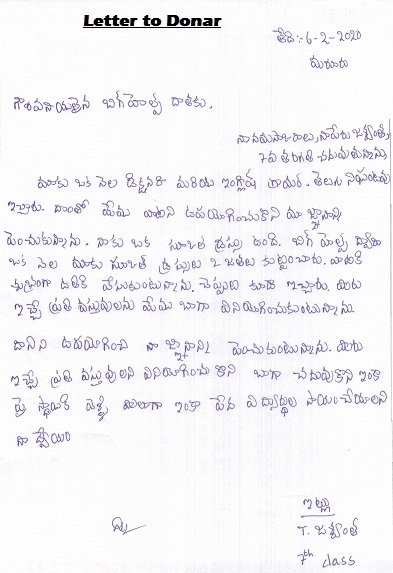 Letter to Donar
తేది:- 6-2-2020
గౌరవనీయులైన బిగ్ హెల్ప్ దాతకు,
నా నమస్కారాలు, నాపేరు జశ్వంత్,
7వ తరగతి చదువుతున్నాను,
మాకు ఒక నెల డిక్షనరి మరియు ఇంగ్లిష్ తెలుగు నిఘంటువు
ఇచ్చారు. దాంతో మేము వాటిని ఉపయోగించుకొని మా జ్ఞానాన్ని
పెంచుకున్నాను. నాకు ఒక డ్రస్సు ఉంది. బిగ్ హెల్ప్ ద్వారా
ఒక నెల మాకు డ్రస్సులు 2 జతలు కుట్టించారు. వాటికి
శుభ్రంగా ఉతికి వేసుకుంటున్నాను. చెప్పులు కూడా ఇచ్చారు. మీరు
ఇచ్చే ప్రతి వస్తువులను మేము బాగా వినియోగించుకుంటున్నాను.
దానిని ఉపయోగించి నా జ్ఞానాన్ని పెంచుకుంటున్నాను. మీరు
ఇచ్చే ప్రతి వస్తువులని వినియోగించుకొని బాగా చదువుకొని ఇంకా
పై స్థాయికి వెళ్ళి మీలాగా ఇంకా పేద విద్యార్థుల సాయం చేయాలని
నా ధ్యేయం
ఇట్లు
T. జశ్వంత్
7th class